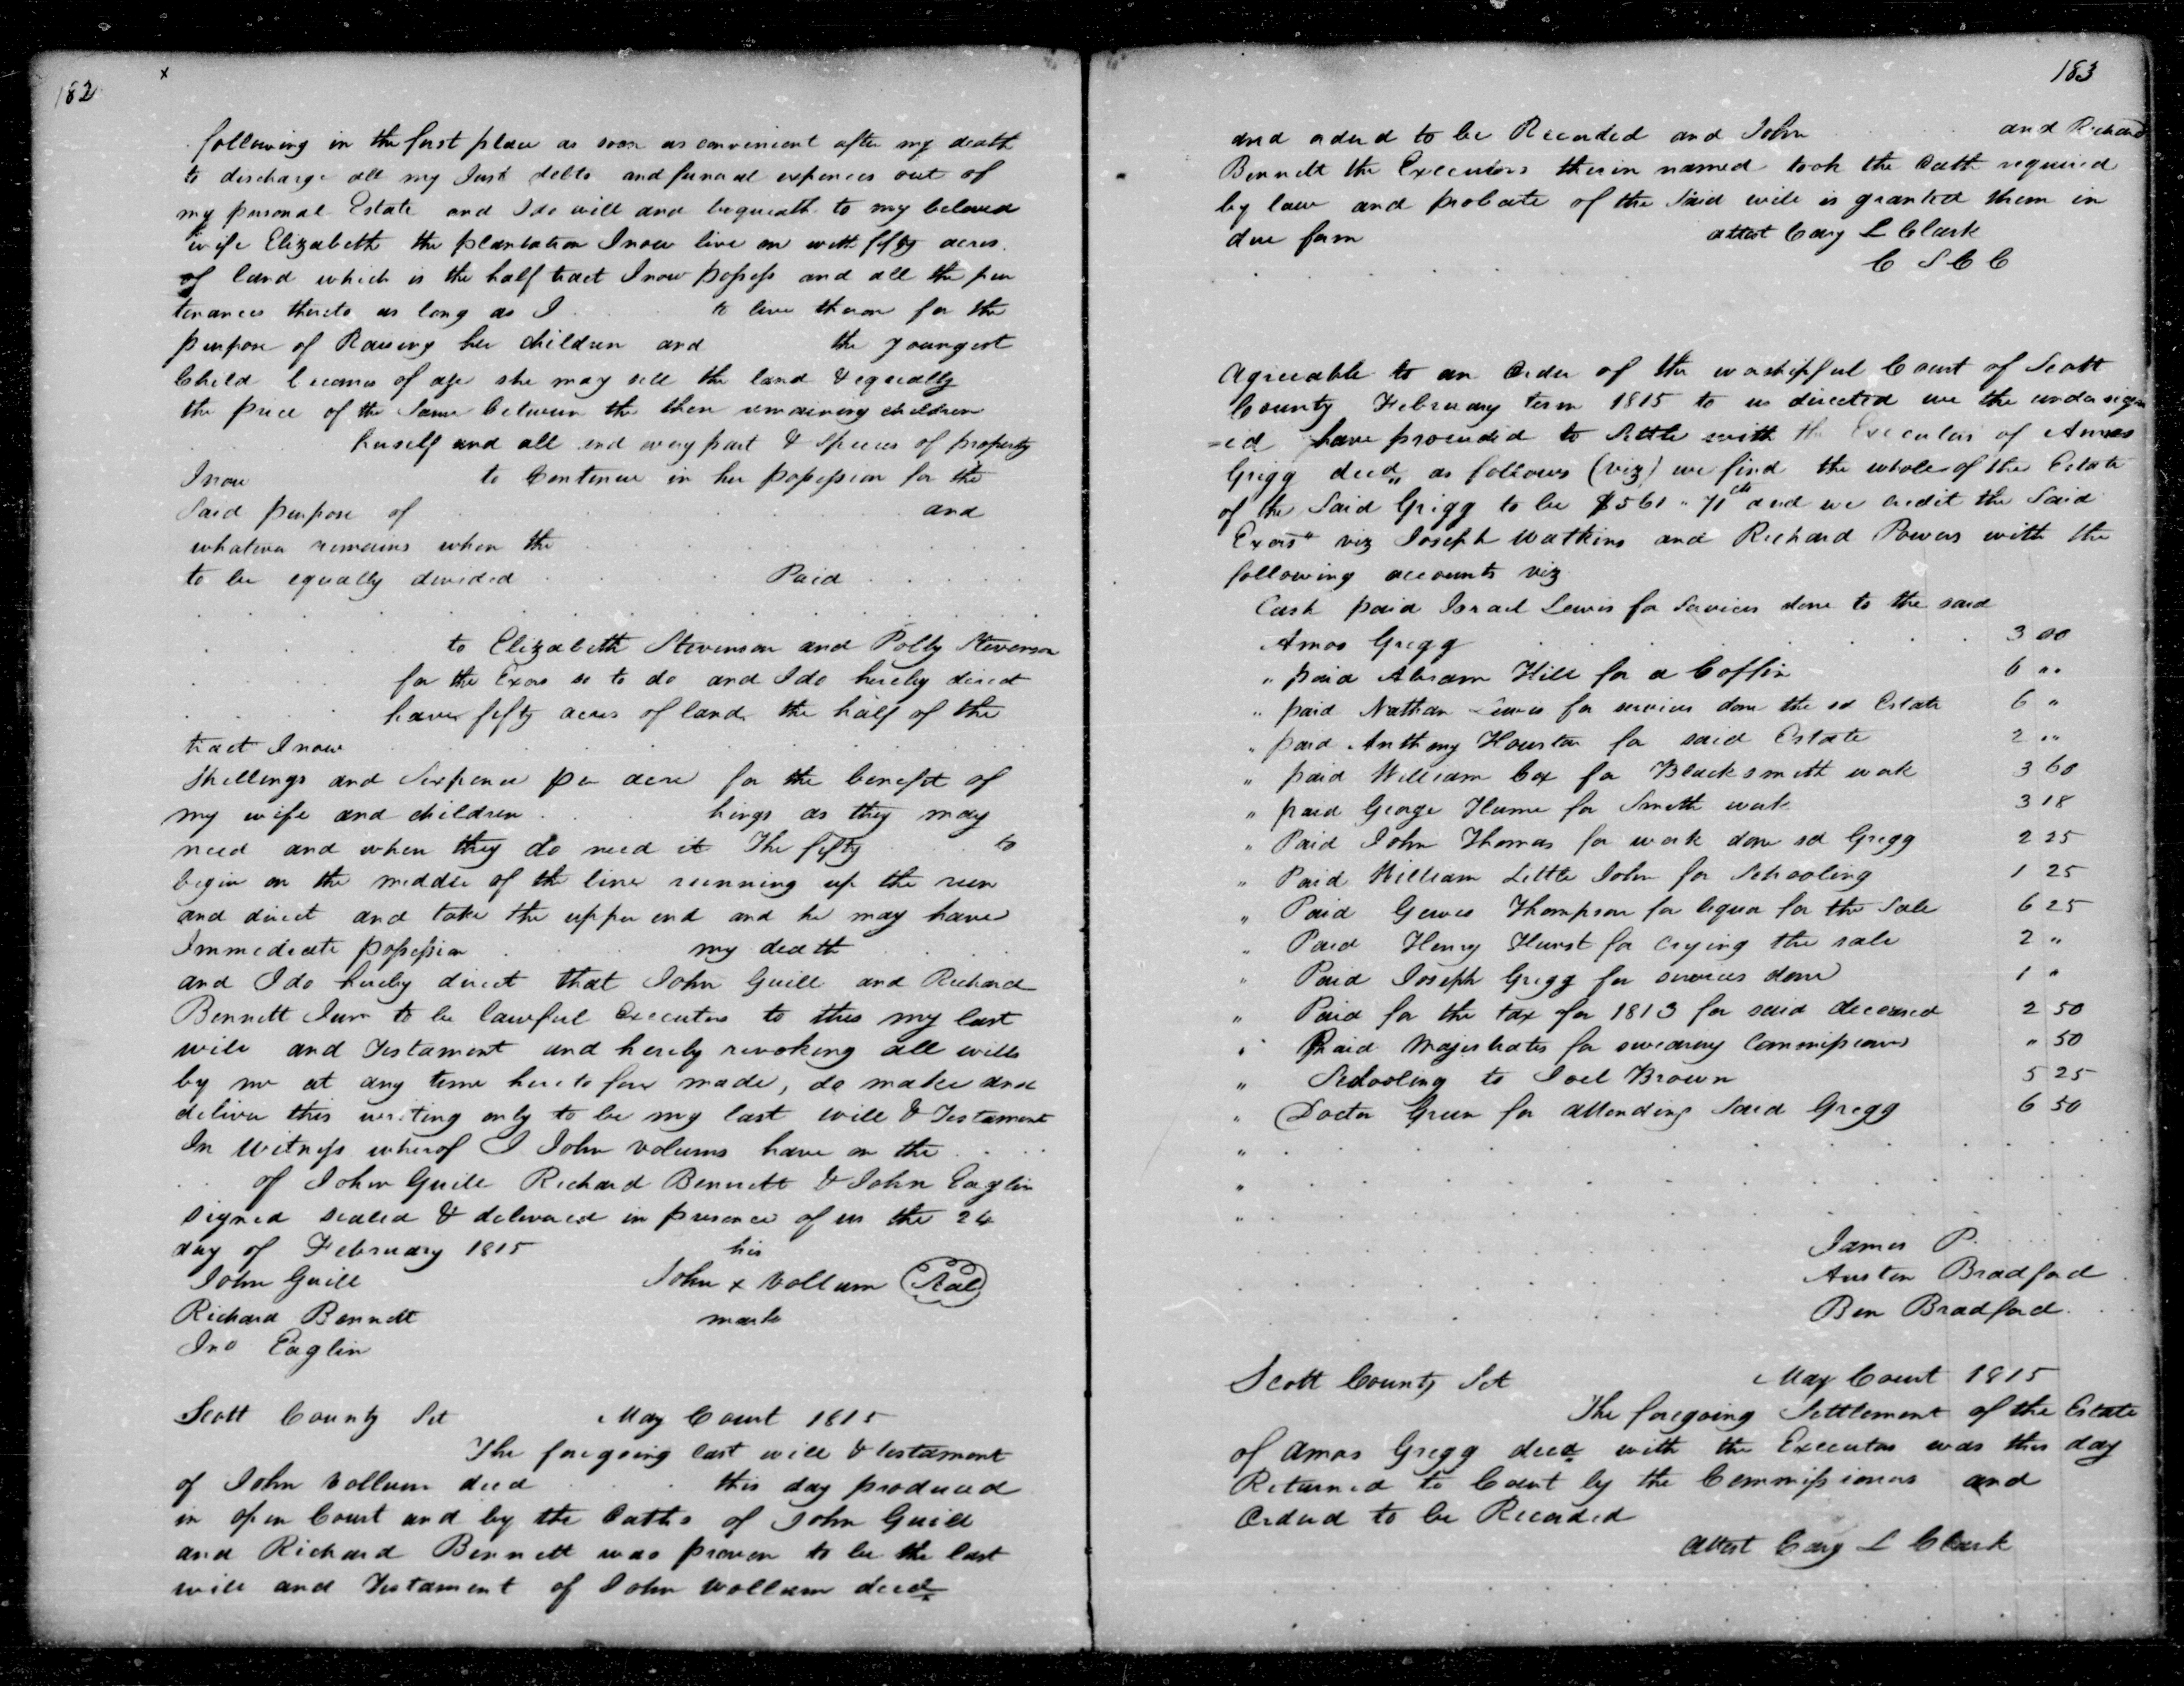 182
x
following in the first place as soon as convenient after my death
to discharge all my Just debts and funeral expences out of
my personal Estate and I do will and bequeath to my beloved
wife Elizabeth the plantation I now live on with fifty acres
of land which is the half tract I now possess and all the pur
tenances thereto as long as I to live thereon for the
purpose of Raising her children and the youngest
Child becomes of age she may sell the land & equally
the price of the Same between the then remaining children
herself and all and every part & Species of property
I now to Continue in her possession for the
Said purpose of and
whatever remains when the
to be equally devided Paid
to Elizabeth Stevenson and Polly Stevenson
for the Exors so to do and I do hereby direct
have fifty acres of land the half of the
tract I now
Shillings and Sixpence per acre for the benefit of
my wife and children hings as they may
need and when they do need it The fifty to
begin on the middle of the line running up the run
and direct and take the upper end and he may have
Immediate possession my death
and I do hereby direct that John Guill and Richard
Bennett Junr to be lawful Executors to this my last
will and Testament and hereby revoking all wills
by me at any time heretofore made, do make and
deliver this writing only to be my last will & Testament
In Witness wherof I John Volums have on the
of John Guill Richard Bennett & John Eaglin
signed sealed & delivered in presence of us the 24
day of February 1815 his
John Guill John x Vollum Seal
Richard Bennett mark
Jno Eaglin
Scott County Sct May Court 1815
The foregoing last will & testament
of John Vollum decd this day produced
in open Court and by the Oaths of John Guill
and Richard Bennett was proven to be the last
will and Testament of John Vollum decd
183
and ordered to be Recorded and John and Richard
Bennett the Executors therein named took the Oath required
by law and probate of the Said will is granted them in
due form attest Cary L Clark
C S C C
Agreeable to an Order of the worshipful Court of Scott
County February term 1815 to us directed we the undersign
=ed have proceeded to Settle with the Executors of Amos
Grigg decd as follows (viz) we find the whole of the Estate
of the Said Grigg to be $561 " 71 cts and we credit the Said
Exors viz Joseph Watkins and Richard Powers with the
following accounts viz
Cash paid Israel Lewis for Services done to the said
Amos Gregg 3 00
" paid Abram Hill for a Coffin 6 ""
" paid Nathan Lewis for services done the sd Estate 6 "
" paid Anthony Houston for said Estate 2 ""
" paid William Cox for Blacksmith work 3 60
" paid George Hume for Smith work 3 18
" Paid John Thomas for work done sd Gregg 2 25
" Paid William Little John for Schooling 1 25
" Paid Thompson for liquor for the Sale 6 25
" Paid Henry Hurst for crying the sale 2 "
" Paid Joseph Gregg for services done 1 "
" Paid for the tax for 1813 for said deceased 2 50
" Paid Majestrates for swearing Commissioners " 50
" Schooling to Joel Brown 5 25
" Doctor Green for attending Said Gregg 6 50
"
"
"
James P.
Austin Bradford
Ben Bradford
Scott County Sct May Court 1815
The foregoing Settlement of the Estate
of Amos Gregg decd with the Executors was this day
Returned to Court by the Commissioners and
Ordered to be Recorded
Attest Cary L Clark